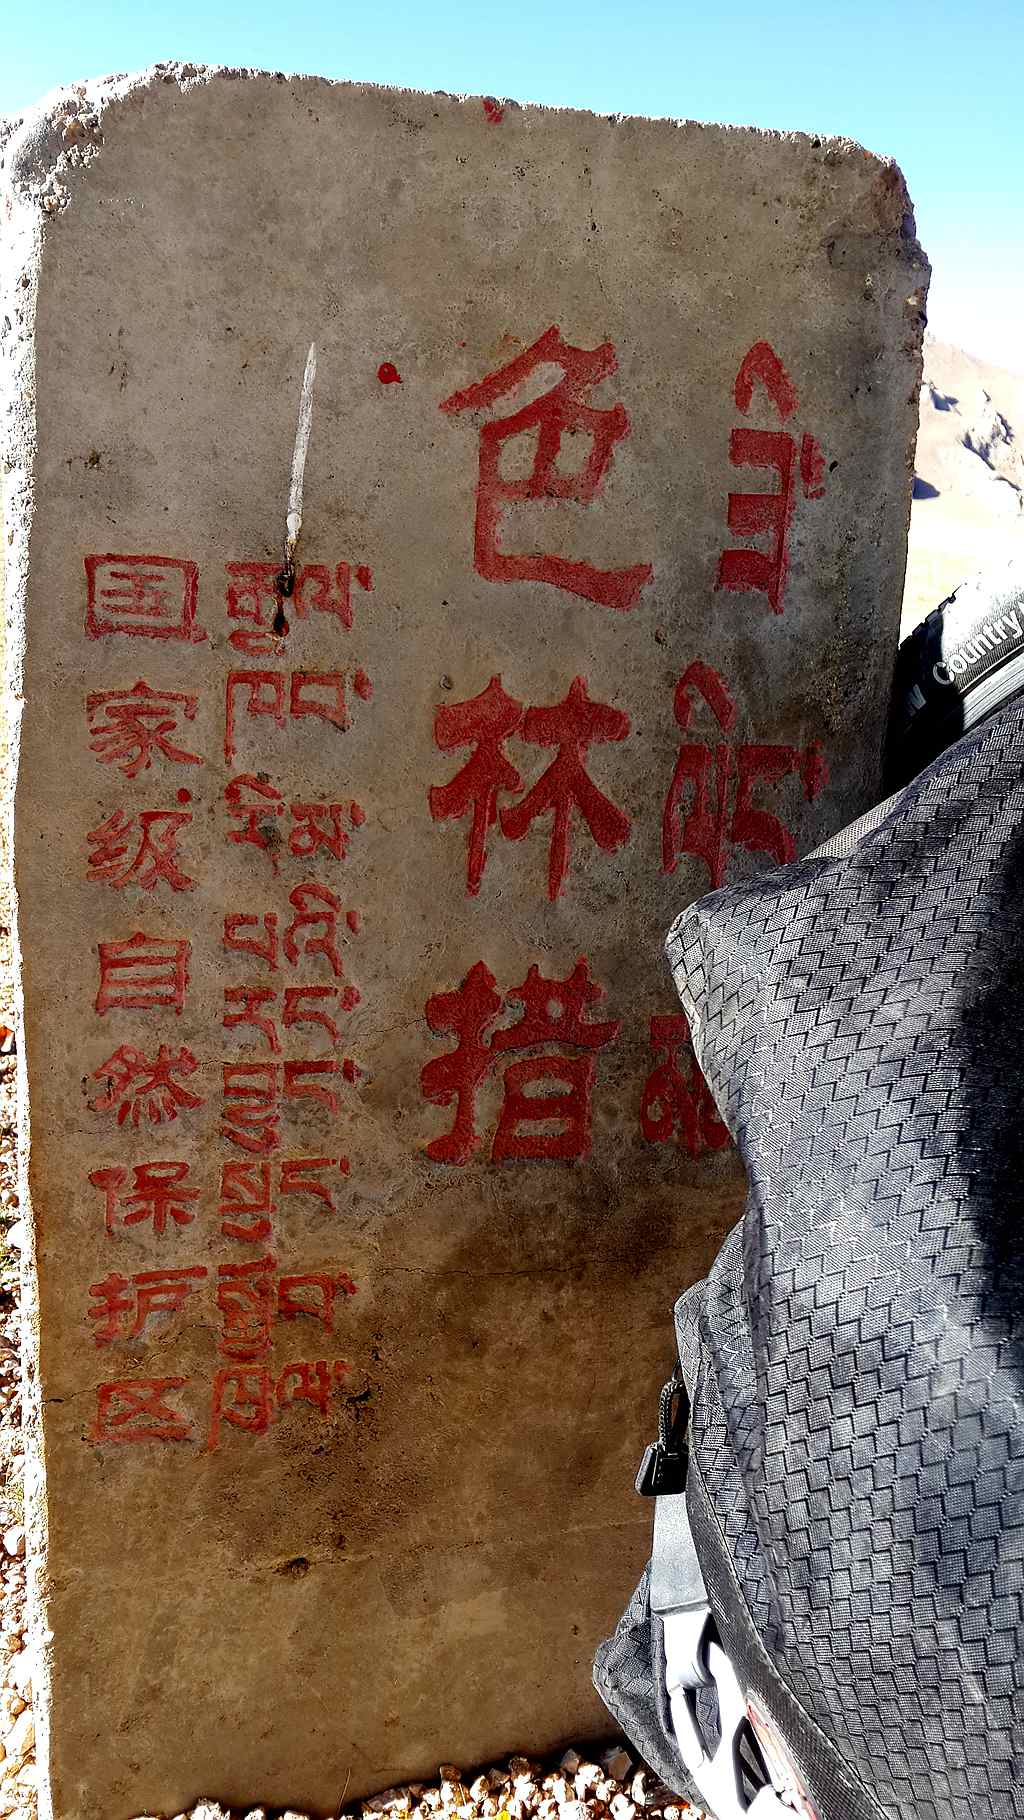 ཟི་ལིང་
色林措
རྒྱལ་ཁབ་རིམ་པའི་རང་བྱུང་སྲུང་སྐྱོབ་ཁུལ
国家级自然保护区
Country